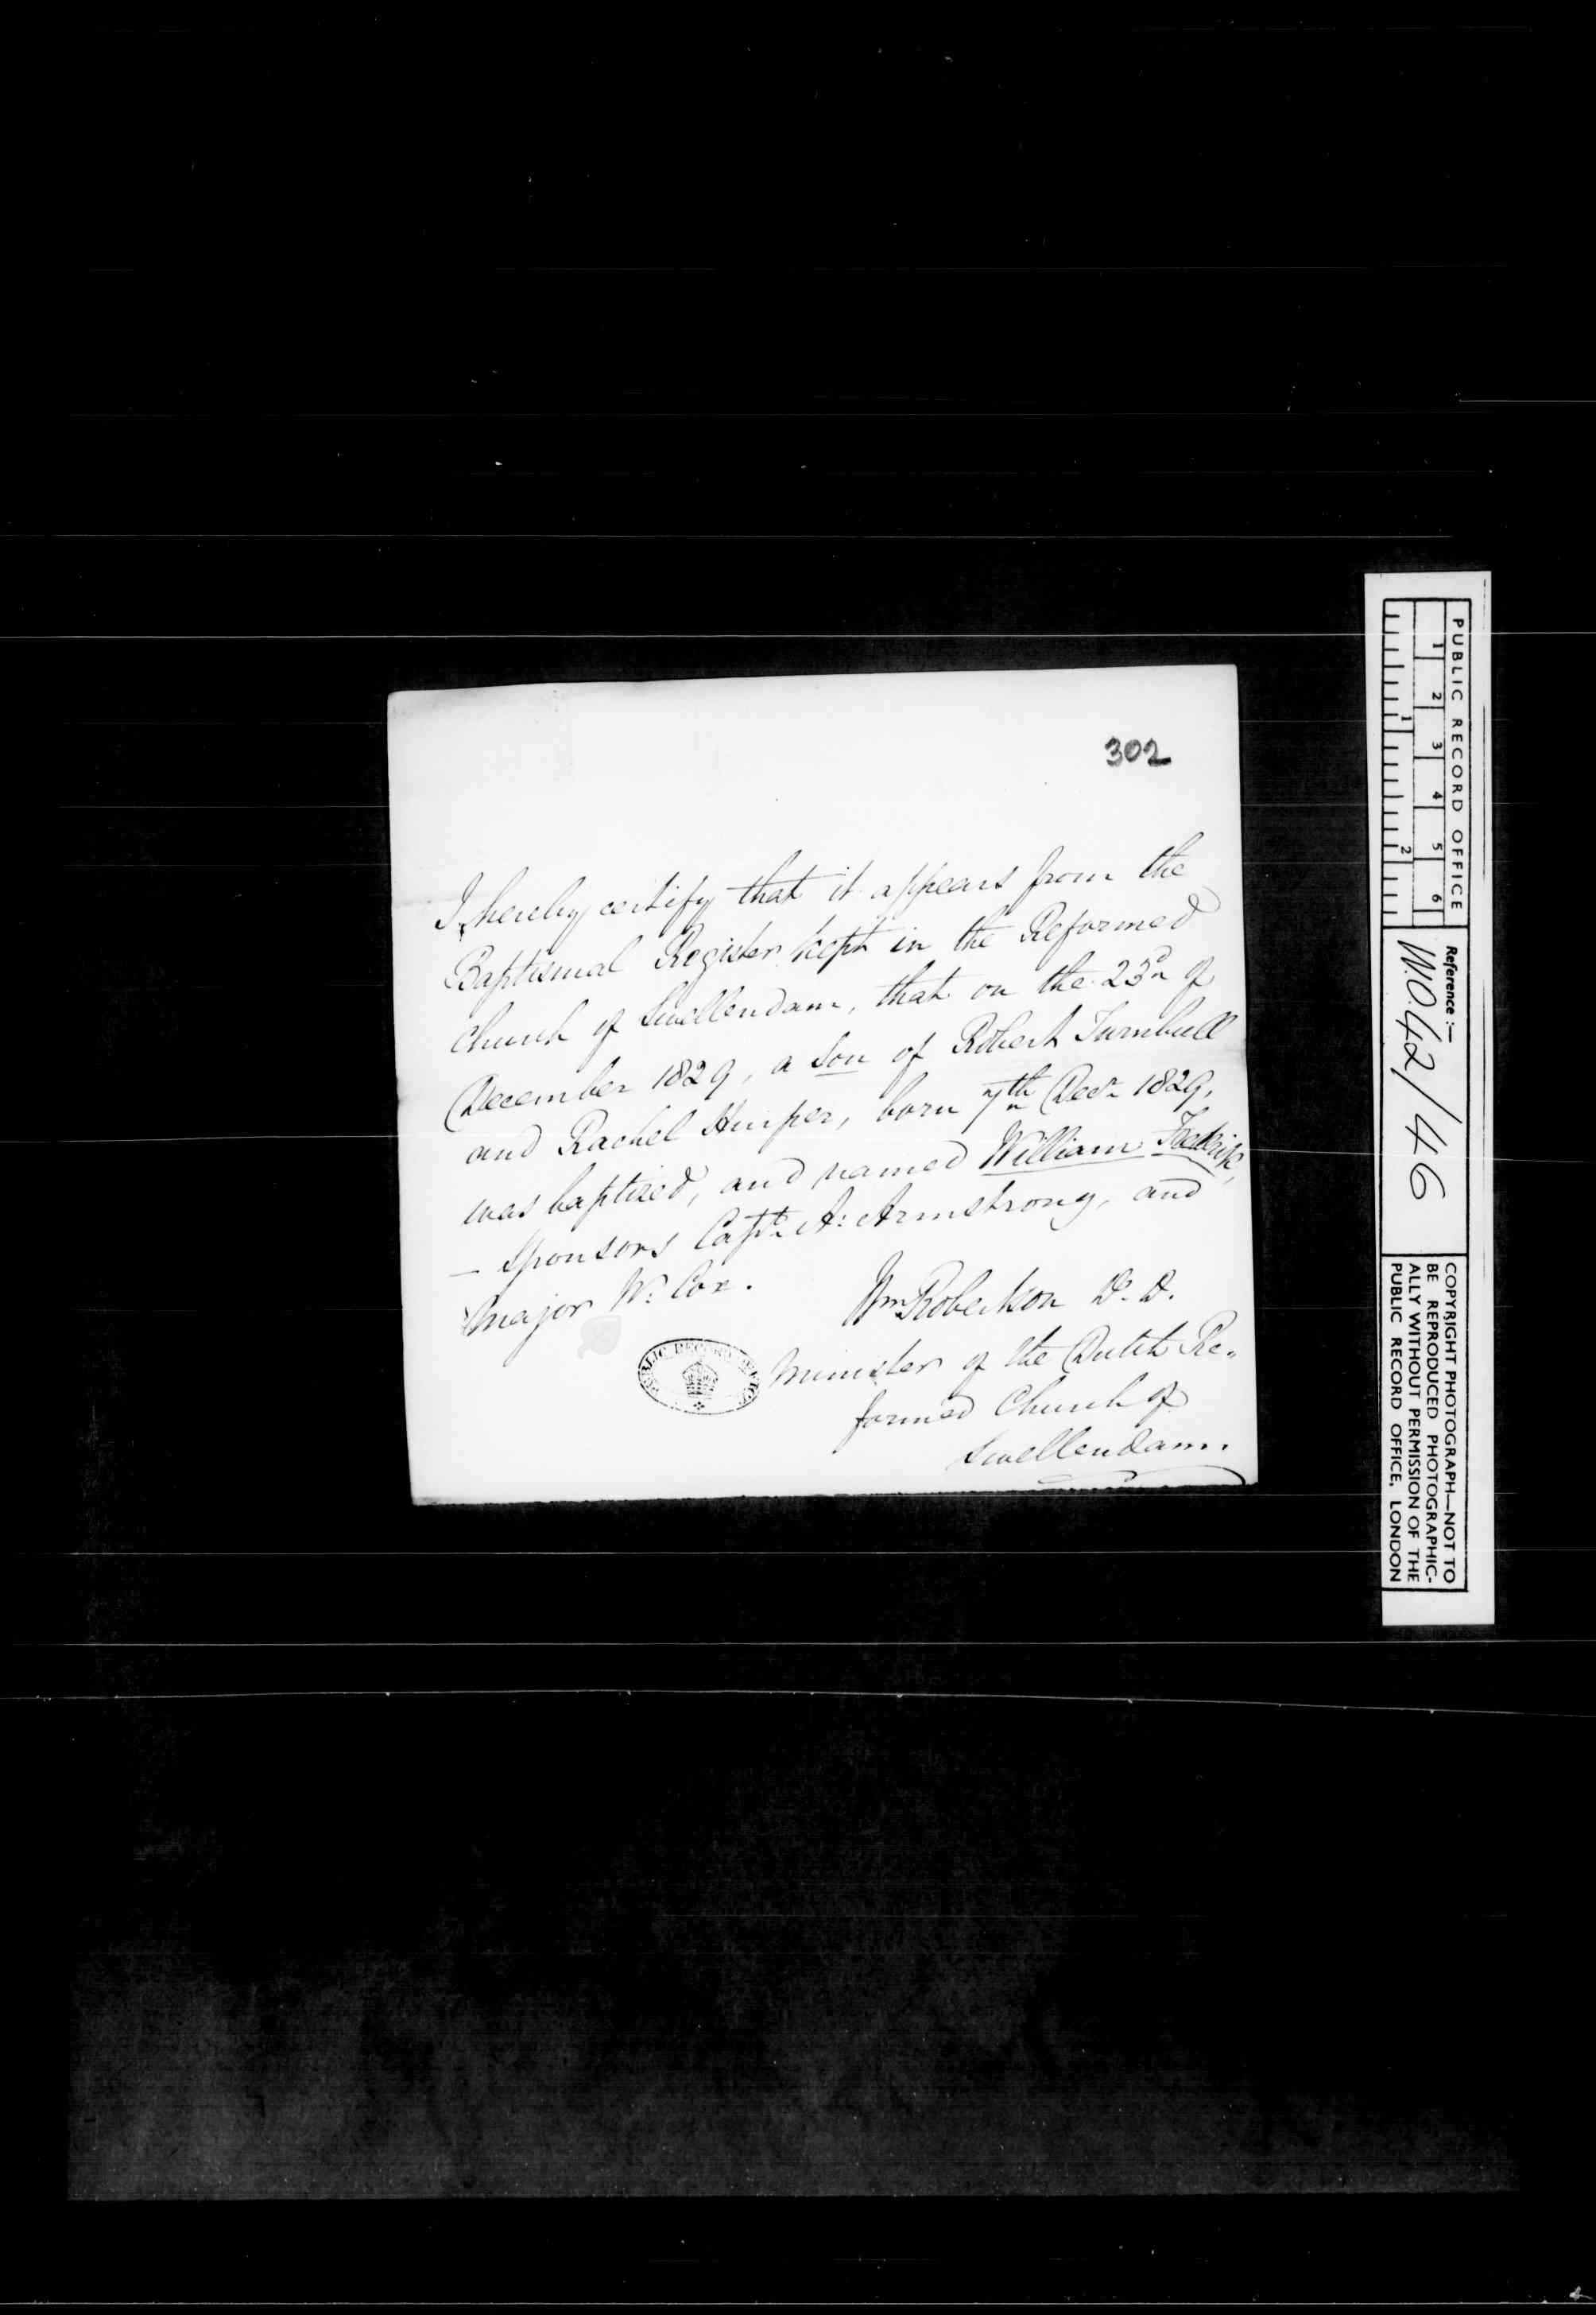 302
I hereby certify that it appears from the
Baptismal Register kept in the Reformed
Church of Swellendam, that on the 23d of
December 1829, a Son of Robert Turnbull
and Rachel, born 7th Decr 1829,
was baptized, and named William Fredrik,
— Sponsors Captn A: Armstrong, and
Major W: Cox.
Wm Robertson D. D.
Minister of the Dutch Re„
formed Church of
Swellendam.
PUBLIC RECORD OFFICE
PUBLIC RECORD OFFICE
1 2 3 4 5 6
1 2
Reference :—
W.O. 42/46
COPYRIGHT PHOTOGRAPH—NOT TO
BE REPRODUCED PHOTOGRAPHIC-
ALLY WITHOUT PERMISSION OF THE
PUBLIC RECORD OFFICE, LONDON